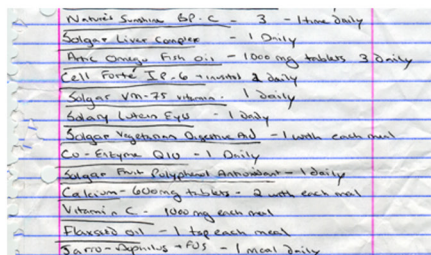 Nature's Sunshine BP-C - 3 - 1 time daily
Solgar Liver Complex - 1 Daily
Artic Omega Fish Oil - 1000 mg tablets 3 daily
Cell Forté IP-6 + inositol 2 daily
Solgar VM-75 vitamin - 1 daily
Solary Lutein Eye - 1 daily
Solgar Vegetarian Digestive Aid - 1 with each meal
Co-Enzyme Q10 - 1 Daily
Solgar Fruit Polyphenol Antioxidant - 1 daily
Calcium - 600mg tablets - 2 with each meal
Vitamin C - 1000 mg each meal
Flaxseed oil - 1 tsp each meal
Jarro-Dophilus + FOS - 1 meal daily